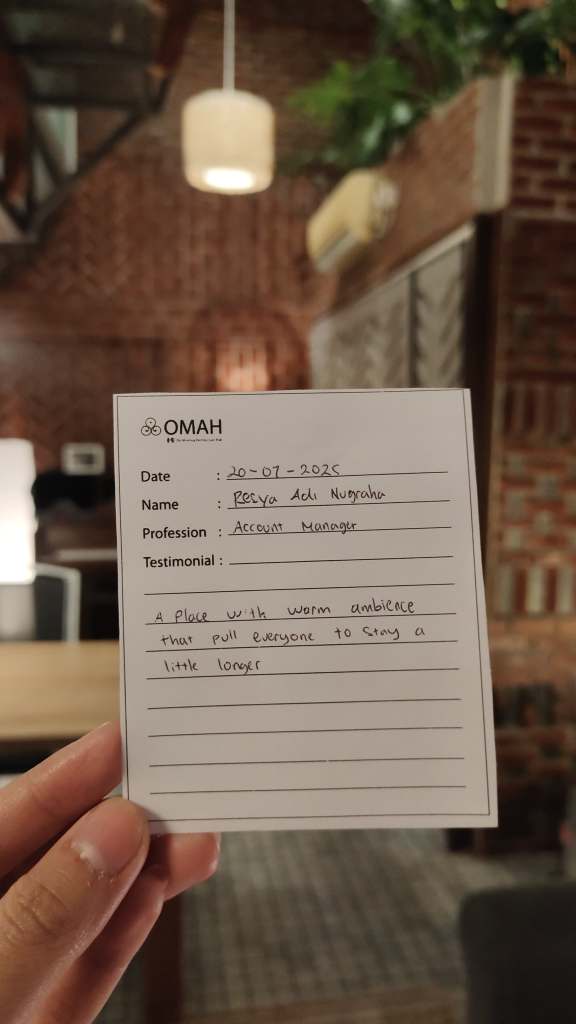 OMAH
Date : 20-07-2025
Name : Resya Adi Nugraha
Profession : Account Manager
Testimonial :
A Place with warm ambience
that pull everyone to stay a
little longer